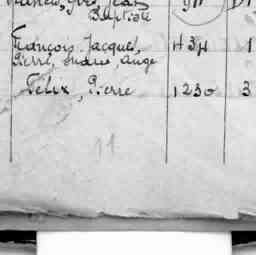 Baptiste
François, Jacques, 434 1
Pierre, Marie, Ange
Félix, Pierre 1230 3
11